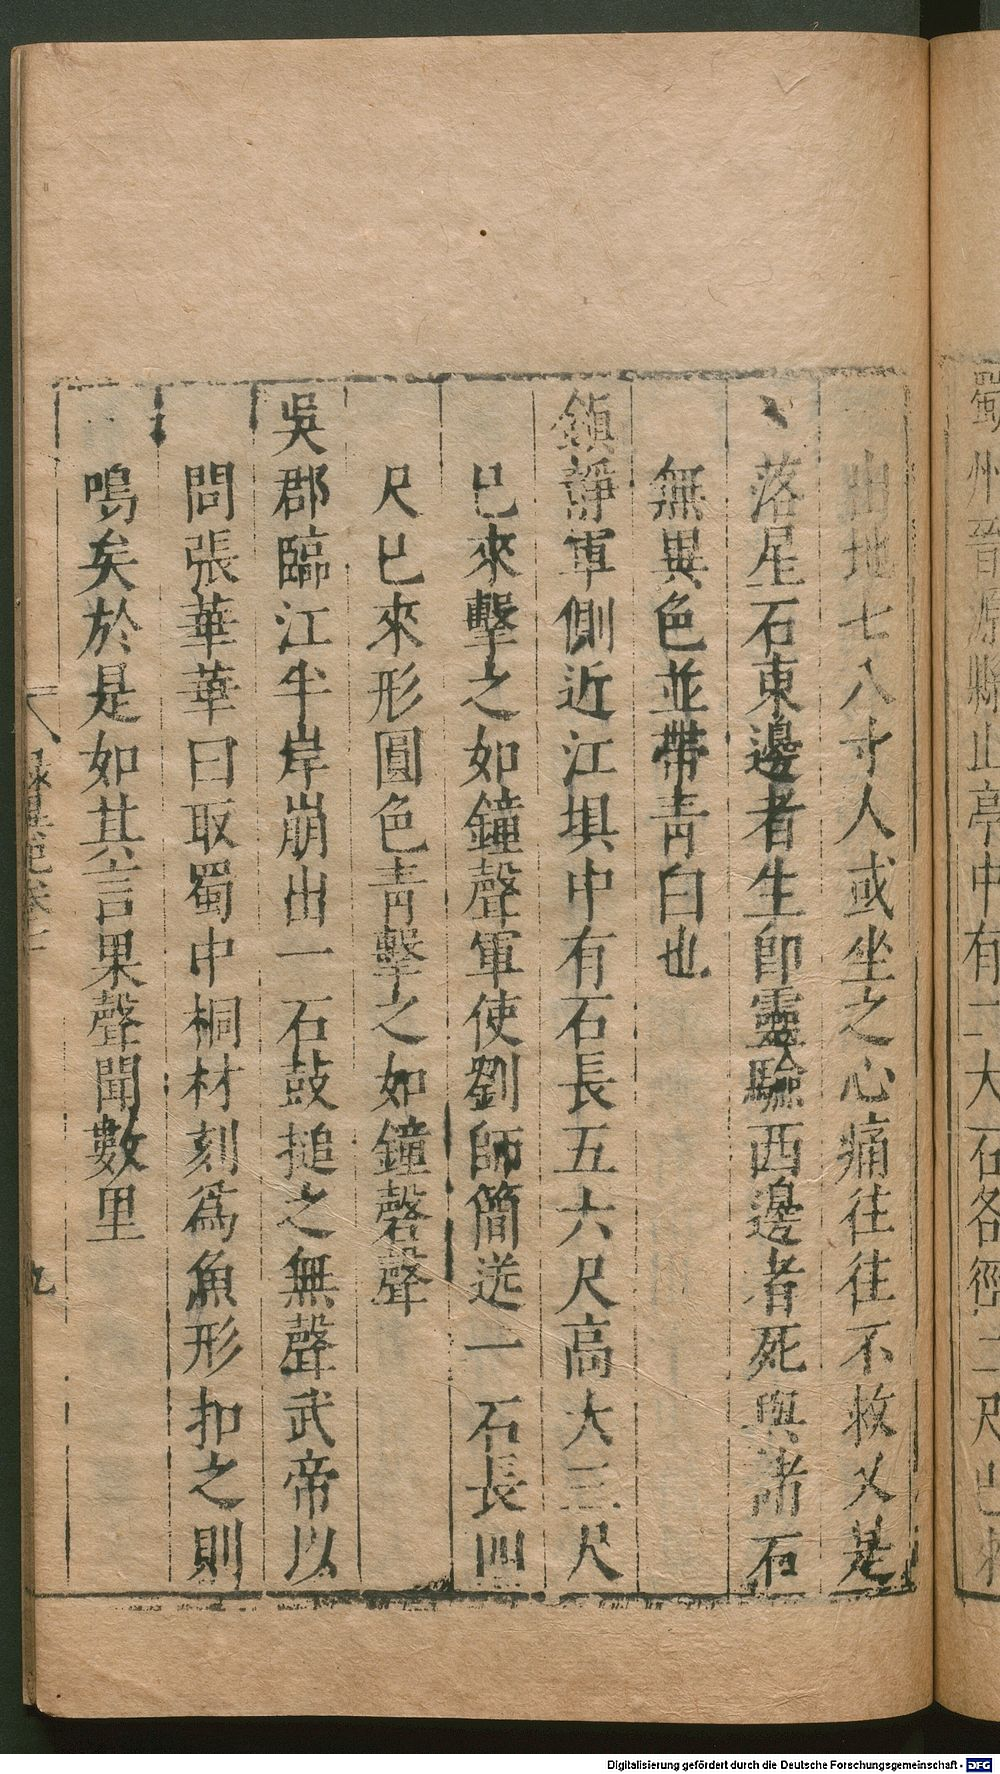 蜀州晉原縣山亭中有二大石各徑二尺已來
出地七八寸人或坐之心痛往往不救又是
落星石東邊者生即靈驗西邊者死與諸石
無異色並帶青白也
鎮靜軍側近江埧中有石長五六尺高大三尺
已來擊之如鐘聲軍使劉師簡送一石長四
尺已來形圓色青擊之如鐘磬聲
吳郡臨江半岸崩出一石鼓搥之無聲武帝以
問張華華曰取蜀中桐材刻為魚形扣之則
鳴矣於是如其言果聲聞數里
錄異記卷七
九
Digitalisierung gefördert durch die Deutsche Forschungsgemeinschaft - DFG